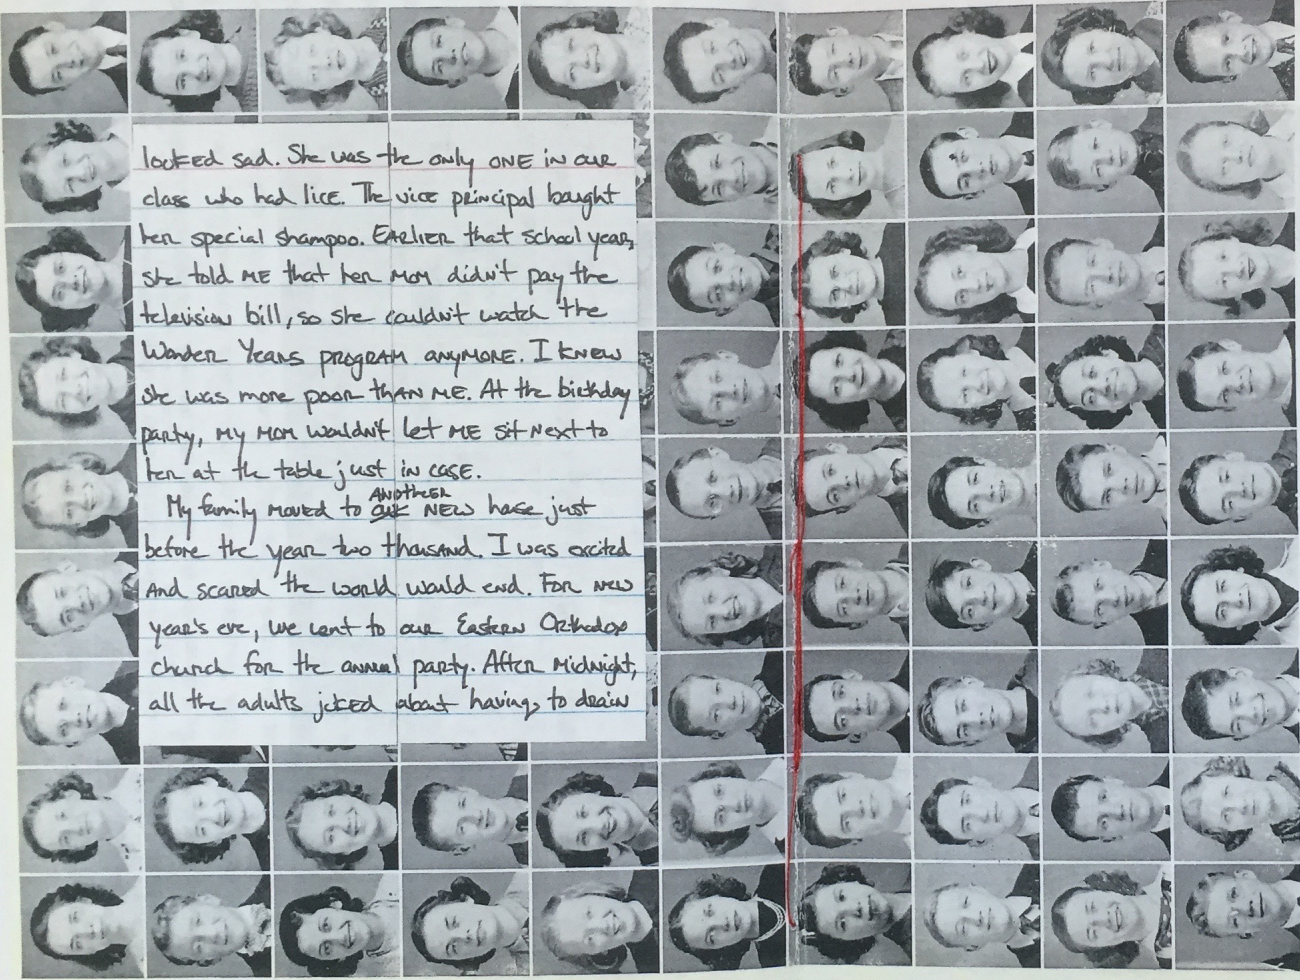 looked sad. She was the only ONE in our
class who had lice. The vice principal bought
her special shampoo. Earlier that school year,
she told ME that her mom didn't pay the
television bill, so she couldn't watch the
Wonder Years program anymore. I knew
she was more poor than ME. At the birthday
party, my mom wouldn't let ME sit next to
her at the table just in case.
ANOTHER
My family moved to NEW house just
before the year two thousand. I was excited
And scared the world would end. For new
year's eve, we went to our Eastern Orthodox
church for the annual party. After midnight,
all the adults joked about having to drain